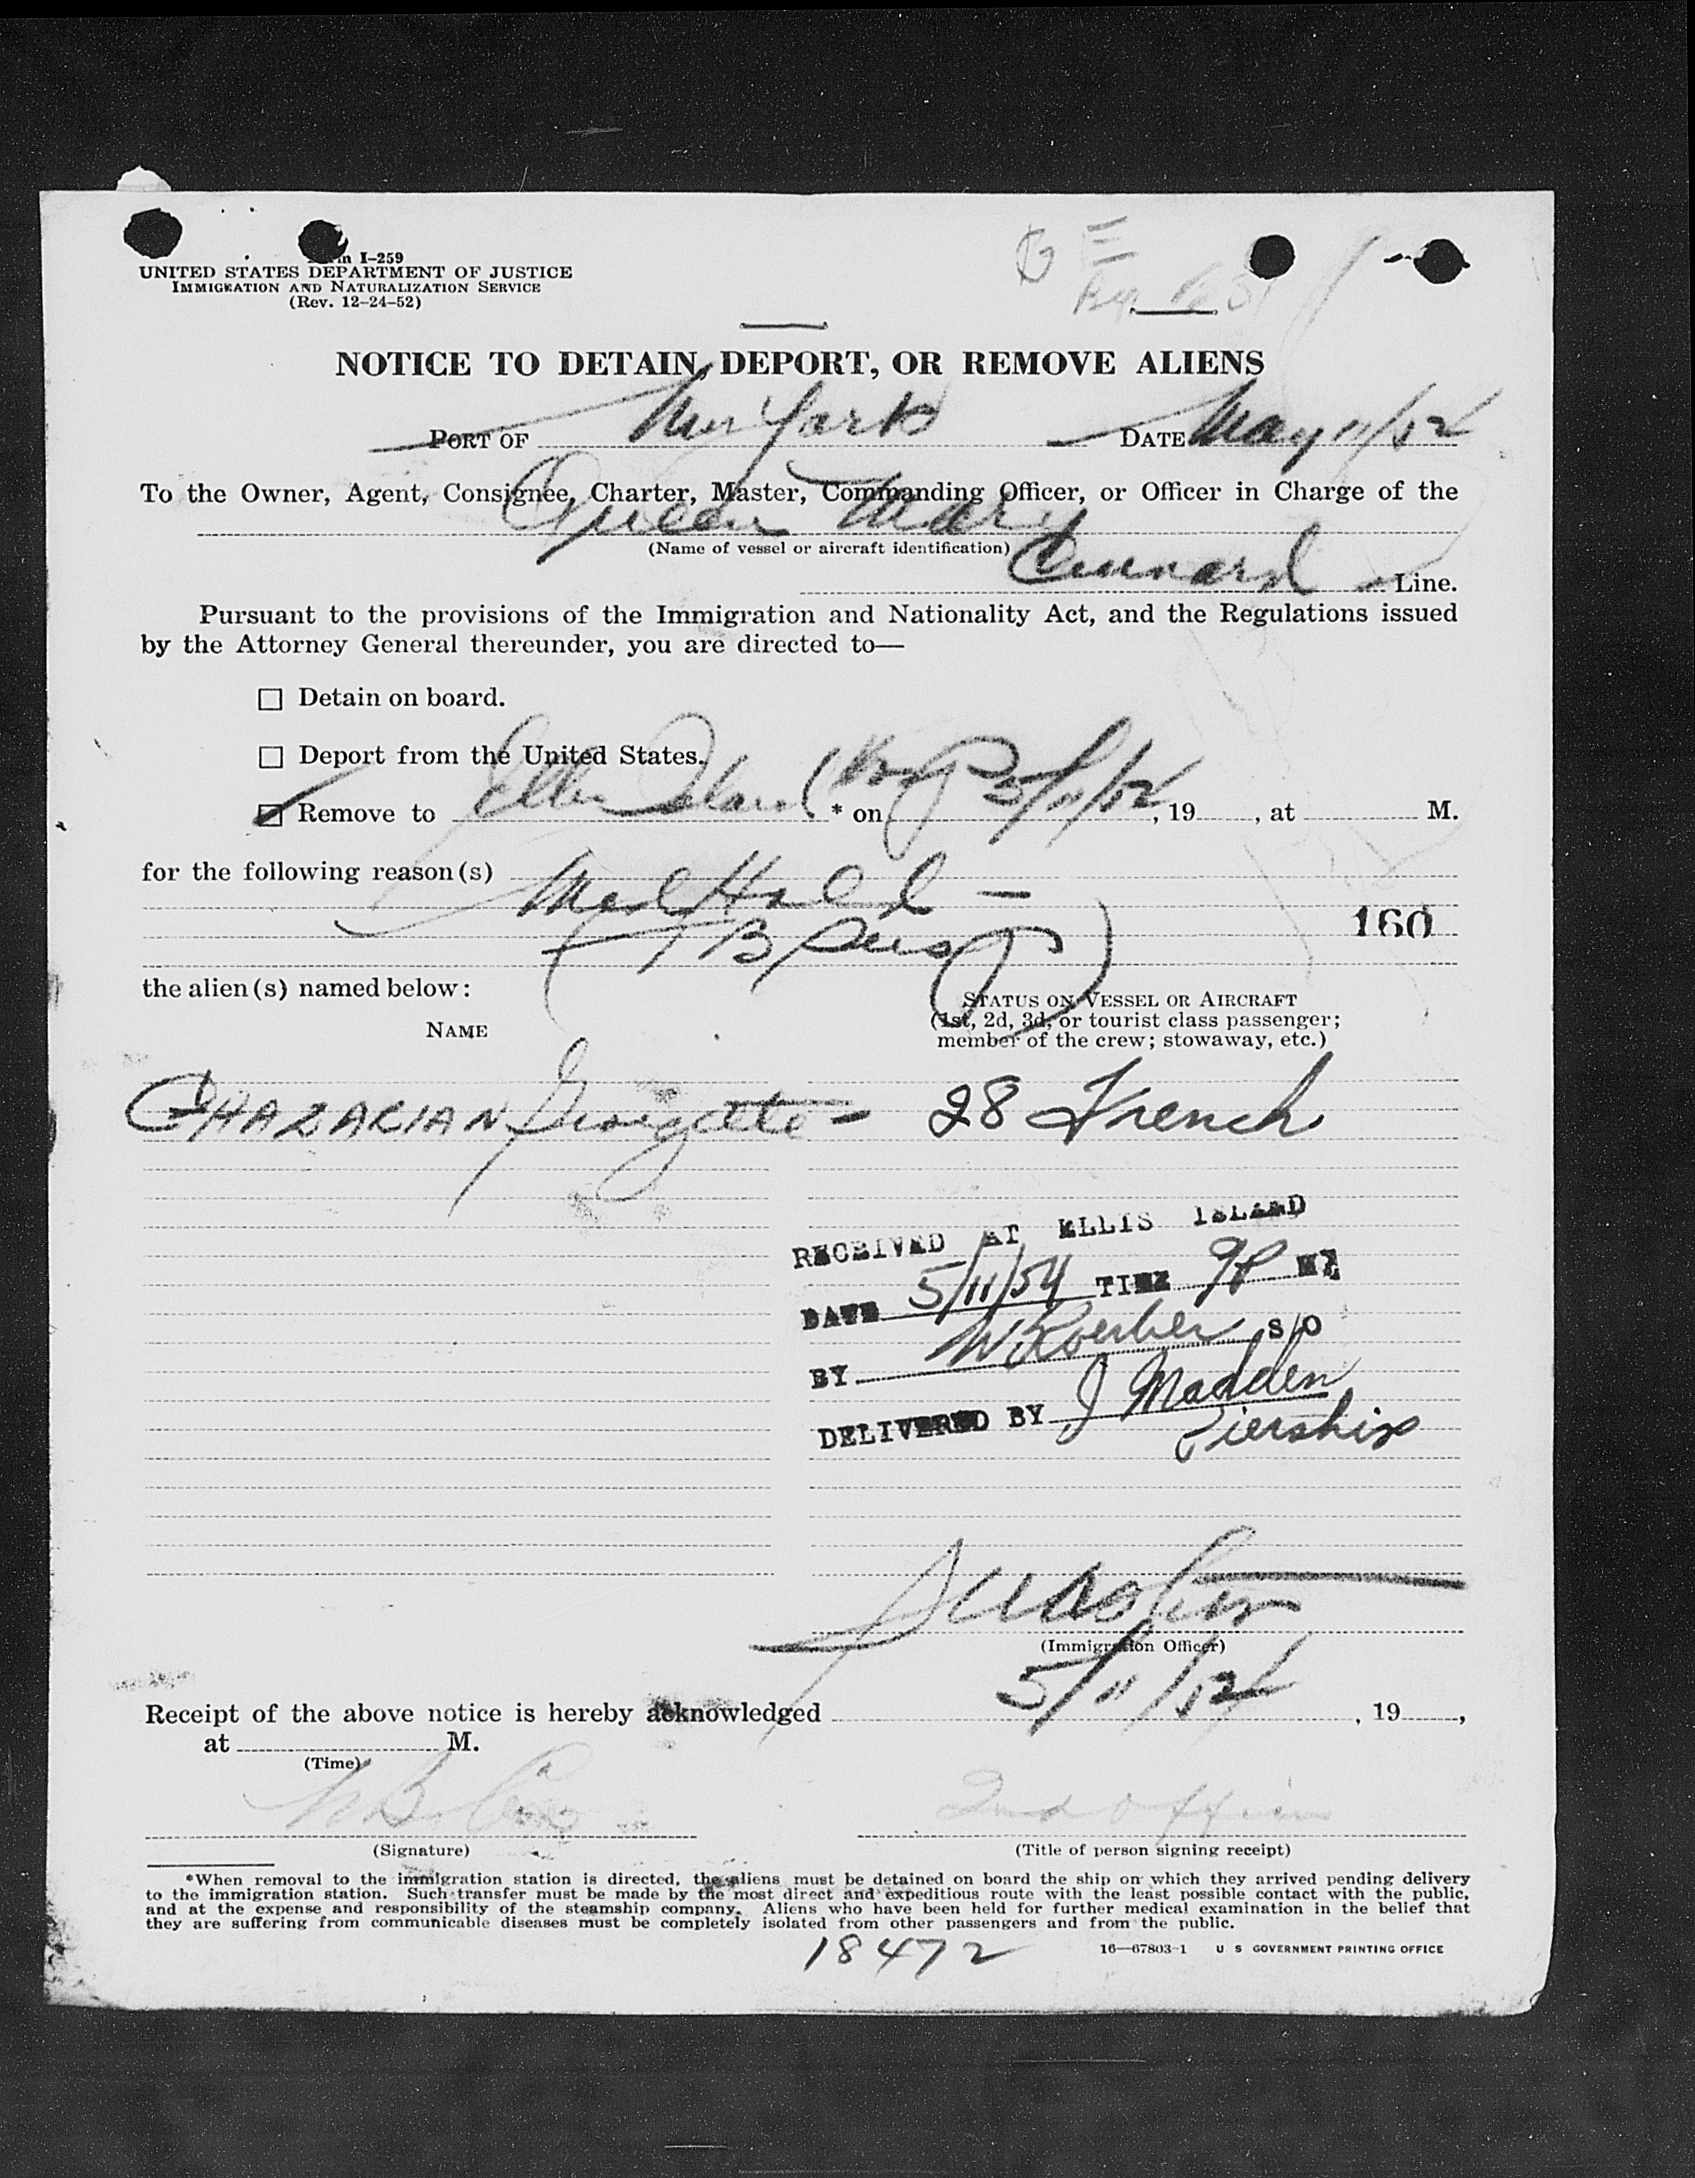 Form I-259
UNITED STATES DEPARTMENT OF JUSTICE
IMMIGRATION AND NATURALIZATION SERVICE
(Rev. 12-24-52)
NOTICE TO DETAIN, DEPORT, OR REMOVE ALIENS
PORT OF New York DATE May 11/54
To the Owner, Agent, Consignee, Charter, Master, Commanding Officer, or Officer in Charge of the
Queen Mary
(Name of vessel or aircraft identification)
Cunard Line.
Pursuant to the provisions of the Immigration and Nationality Act, and the Regulations issued
by the Attorney General thereunder, you are directed to—
☐ Detain on board.
☐ Deport from the United States.
☑ Remove to Ellis Island * on 5/11/54, 19, at M.
for the following reason(s)
Med Hold —
(TB Susp)
160
the alien(s) named below:
NAME
STATUS ON VESSEL OR AIRCRAFT
(1st, 2d, 3d, or tourist class passenger;
member of the crew; stowaway, etc.)
GHAZARIAN Georgette - 28 French
RECEIVED AT ELLIS ISLAND
DATE 5/11/54 TIME 9P M
BY W Koerber S/O
DELIVERED BY J Madden
Piership
(Immigration Officer)
5/11/54
Receipt of the above notice is hereby acknowledged , 19,
at M.
(Time)
2nd Officer
(Signature)
(Title of person signing receipt)
*When removal to the immigration station is directed, the aliens must be detained on board the ship on which they arrived pending delivery
to the immigration station. Such transfer must be made by the most direct and expeditious route with the least possible contact with the public,
and at the expense and responsibility of the steamship company. Aliens who have been held for further medical examination in the belief that
they are suffering from communicable diseases must be completely isolated from other passengers and from the public.
18472
16—67803-1 U S GOVERNMENT PRINTING OFFICE